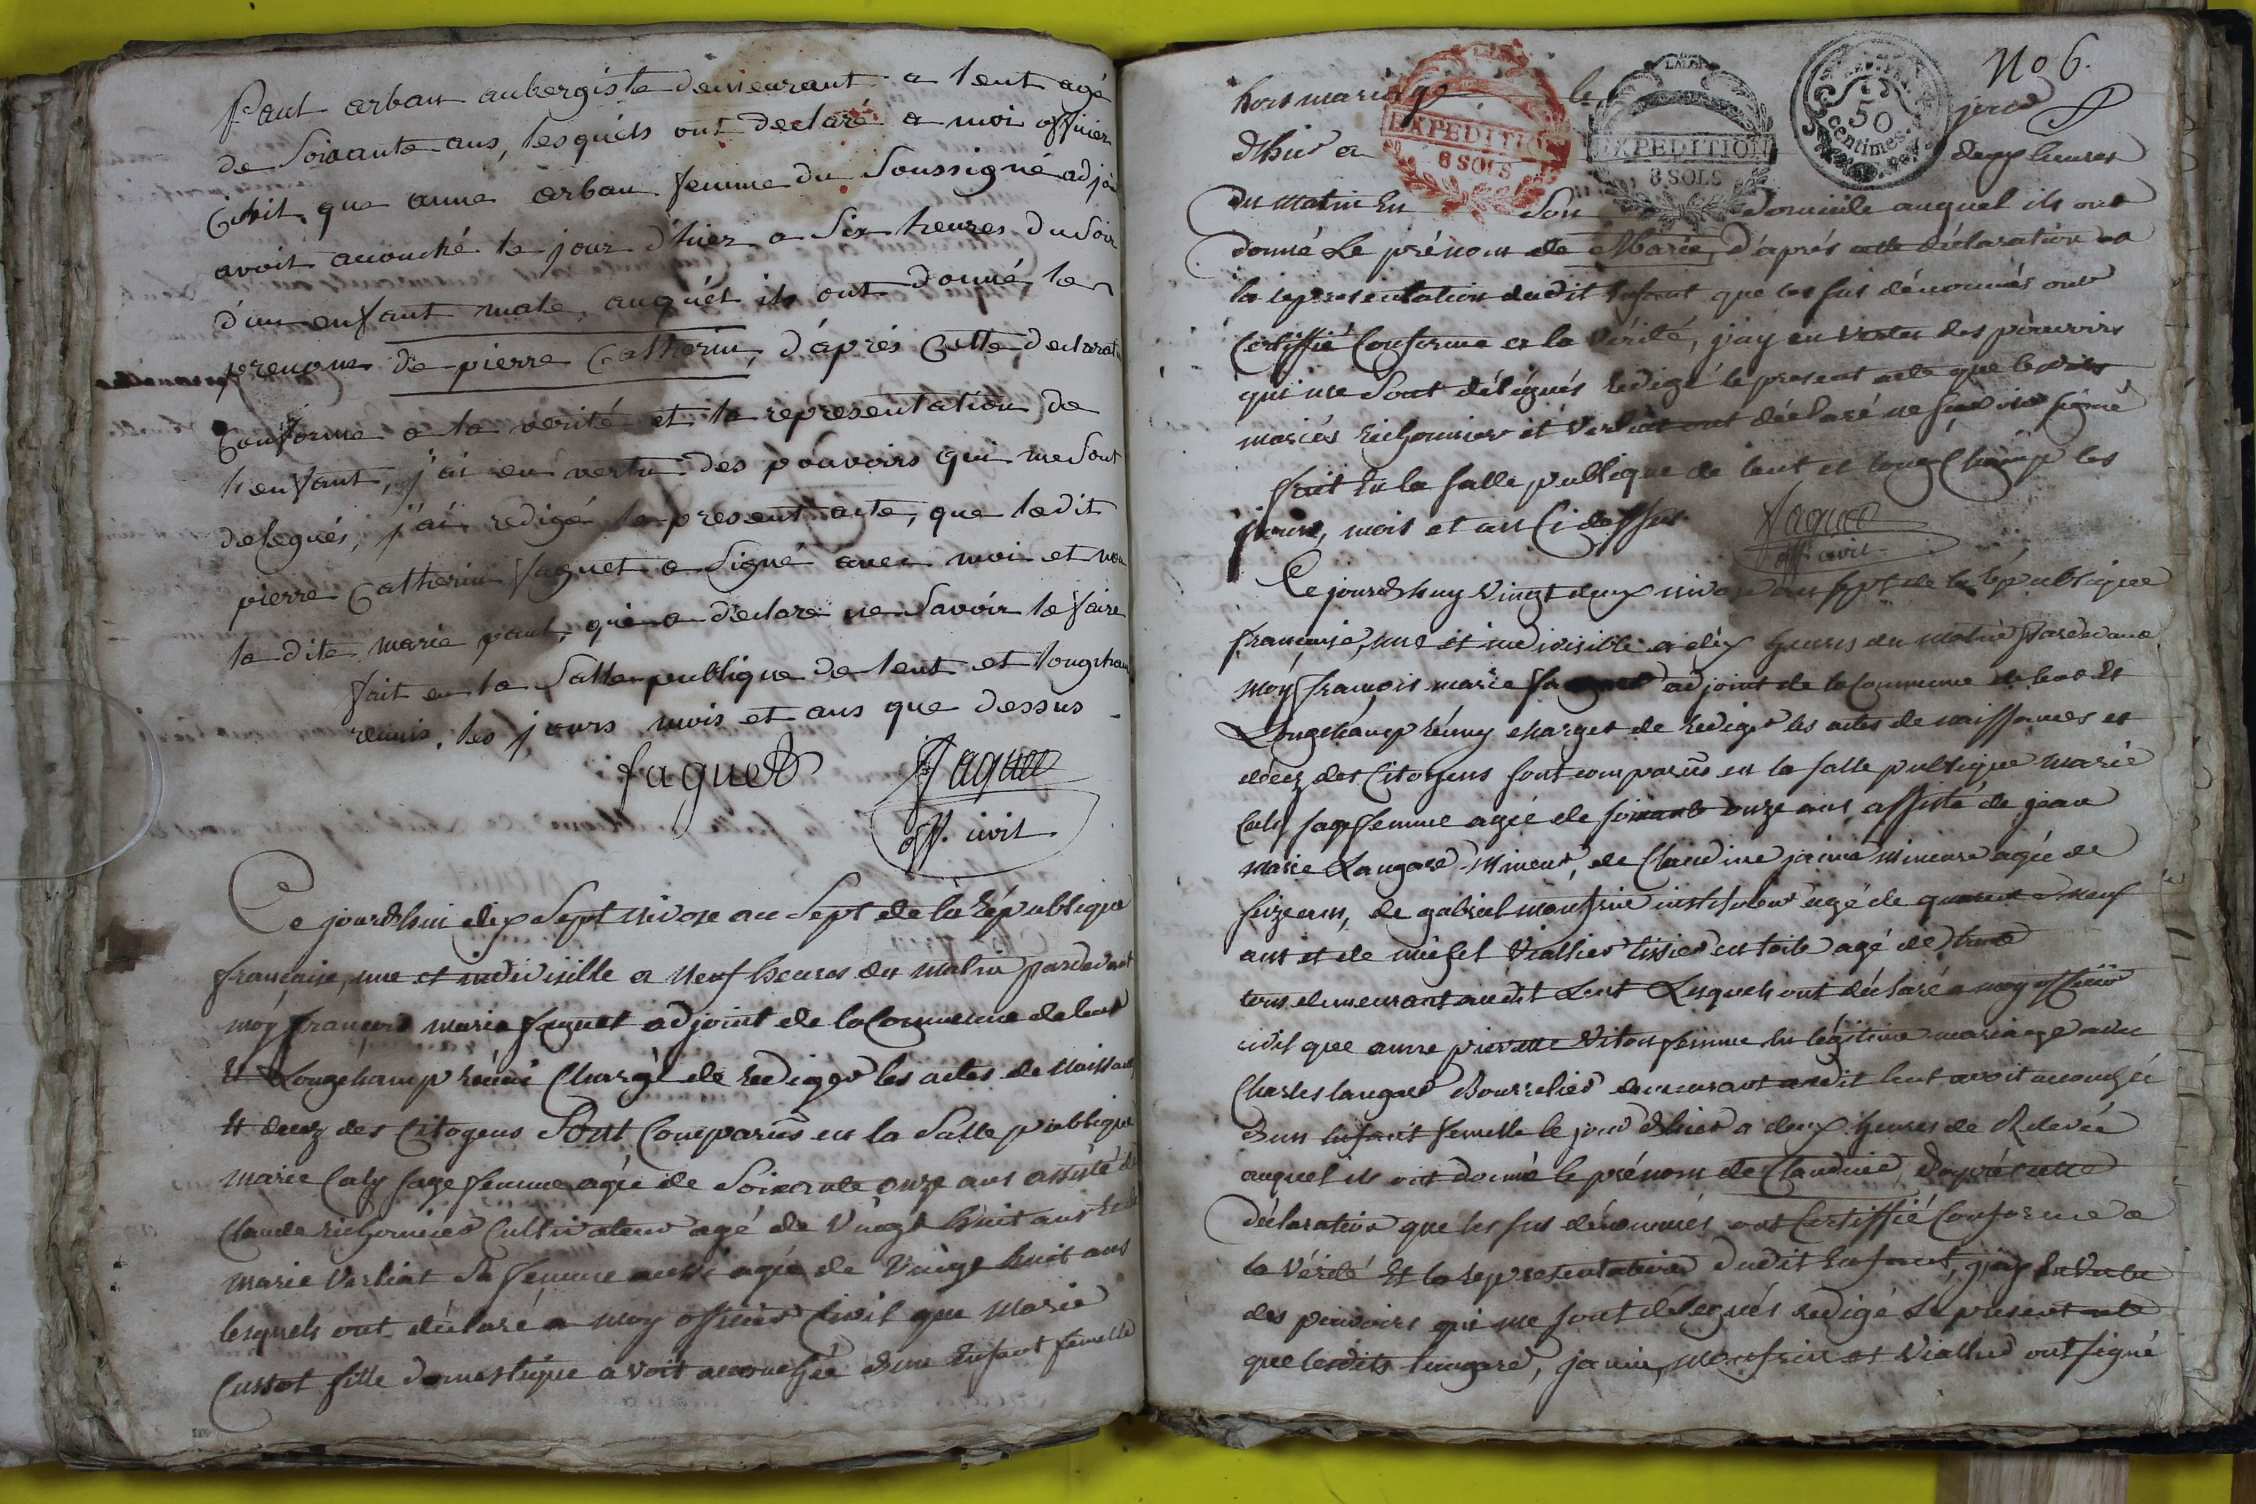 Paul arban aubergiste demeurant a lent agé
de Soixante ans, lesquels ont declaré a moi officier
Civil, que anne arban femme du Soussigné adjoi
avoit accouché le jour d'hier a Six heures du Soir
d'un enfant male, auquel ils ont donné le
prenom de pierre Catherin, d'aprés Cette declarat
Conforme a la verité et la representation de
l'enfant, j'ai en vertu des pouvoirs qui me Sont
delegués, j'ai redigé le present acte, que ledit
pierre Catherin faguet a Signé avec moi et non
la dite marie paul, qui a declaré ne Savoir le faire
fait en la Salle publique de lent et longcham
reunis, les jours mois et ans que dessus
faguet faguet
off. civil
Ce jourdhui dix Sept nivose an Sept de la République
française, une et indivisille a neuf heures du matin pardevant
moy françois marie faguet adjoint de la Commune de lent
Et Longchamp réunie Chargé de rediger les actes de Naissan
Et decez des Citoyens Sont Comparüs en la Salle publique
marie Caly sage femme agée de Soixante onze ans assisté de
Claude richonnier Cultivateur agé de Vingt huit ans
marie Verliat Sa femme aussi agée de Vingt huit ans
lesquels ont déclaré a moy officier Civil que Marie
Cussot fille domestique avoit accouchée d'un Enfant femelle
No 6.
EXPEDITION
6 SOLS
EXPEDITION
8 SOLS
50
centimes
hors mariage le jour
dhier a deux heures
du matin En Son domicile auquel ils ont
donné Le prénom de Marie, d'aprés cette déclaration et
la representation dudit Enfant que les sus dénommés ont
Certiffié Conforme a la Vérité, j'ay en Vertu des pouvoirs
qui me Sont délégués redigé le present acte que lesdits
mariés richonnier et Verliat ont déclaré ne savoir signé
fait En la Salle publique de lent et longchamp les
jours, mois et an Ci dessus faguet
off. civil
Ce jourdhuy Vingt deux nivose an sept de la république
française, une et indivisible a dix heures du matin Pardevant
moy françois marie faguet adjoint de la Commune de lent et
Longchamp réuny chargé de rediger les actes de naissances et
décez des Citoyens sont comparüs en la salle publique marie
Caly sage femme agée de soixante onze ans, assisté de jean
marie Laugard Mineur, de Claudine janin Mineure agée de
seize ans, de gabriel monfrin instituteur agé de quarante neuf
ans et de Viallier tissier en toile agé de trente
tous demeurant audit Lent Lesquels ont déclaré a moy officier
civil que anne pierrette Viton femme En légitime mariage avec
Charles laugard Bourrelier demeurant audit lent avoit accouchée
d'un Enfant femelle le jour dhier a deux heures de Relevée
auquel ils ont donné le prénom de Claudine, d'aprés cette
déclaration que les sus dénommés ont Certiffié Conforme a
la Vérité Et la representation dudit Enfant, j'ay En Vertu
des pouvoirs qui me sont délegués redigé Le present acte
que lesdits laugard, janin, monfrin et Viallier ont signé